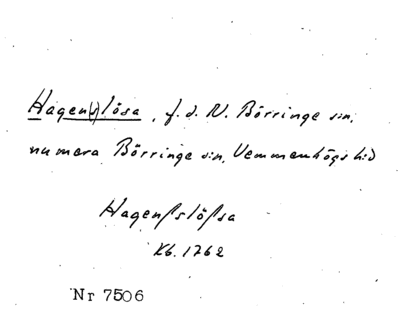 Hagen(s)lösa, f.d. N. Börringe sn,
numera Börringe sn, Vemmenhögs hd
Hagenßlößa
Kb. 1762
Nr 7506